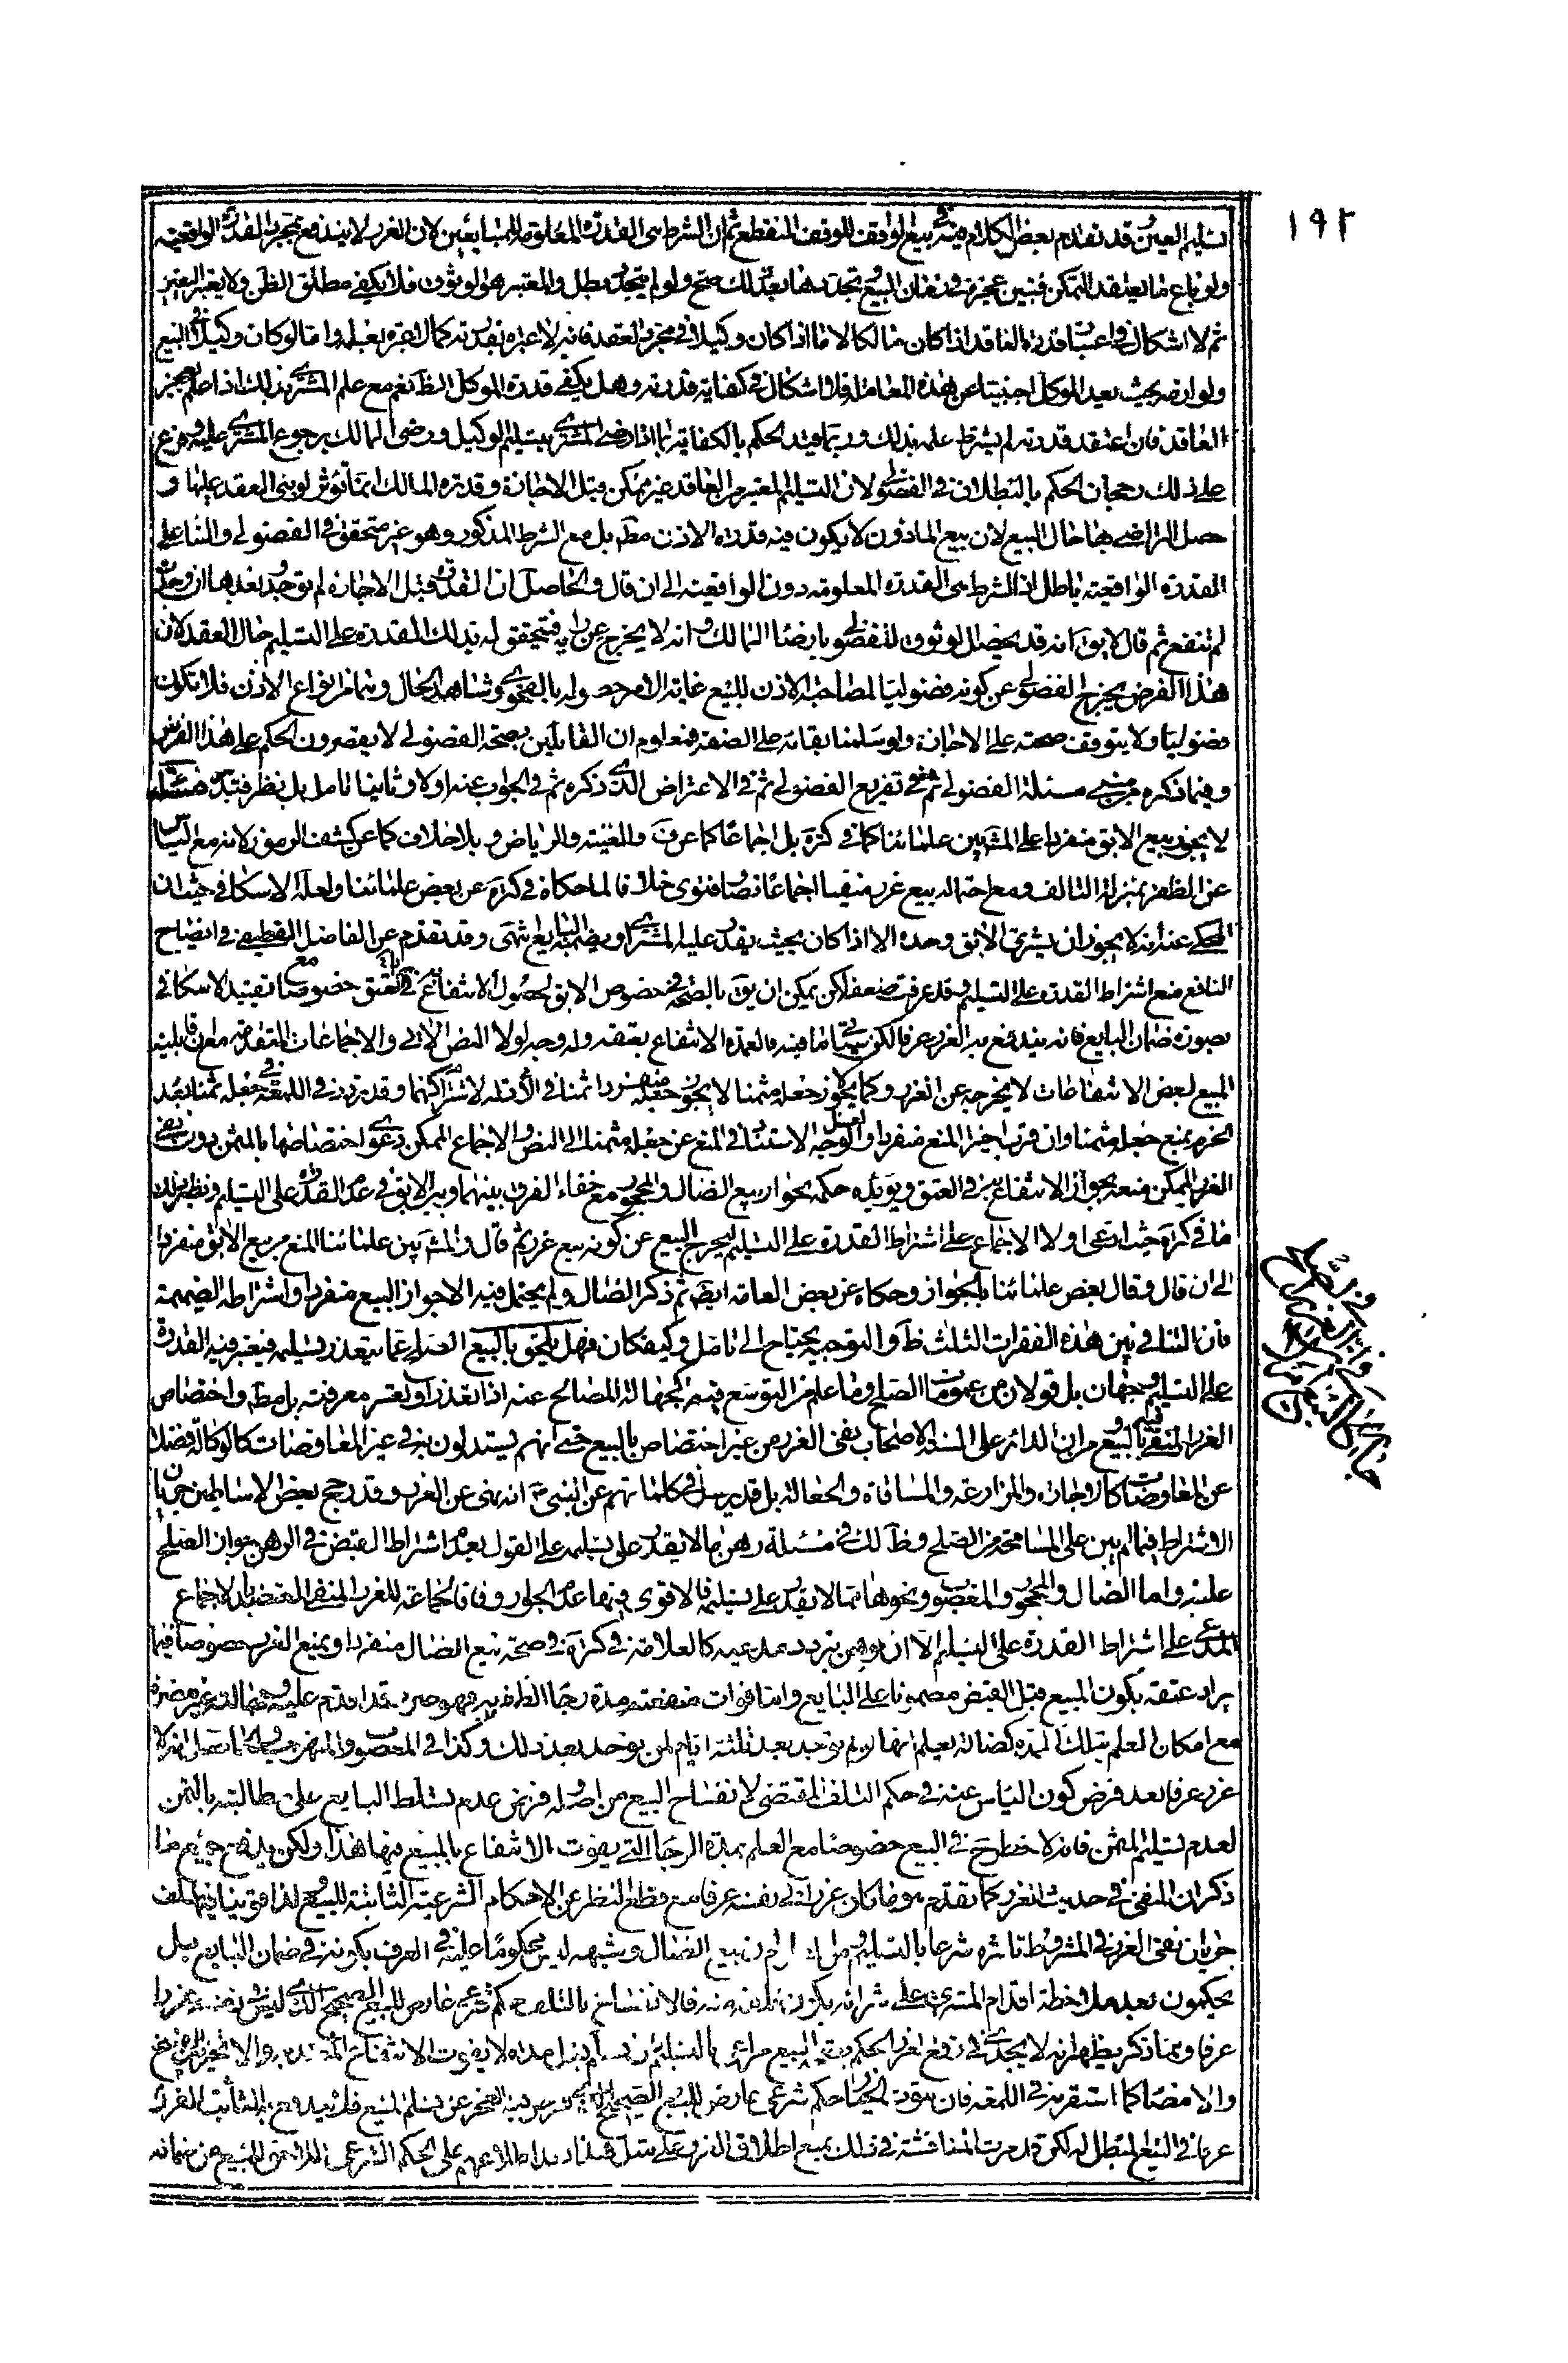 ١٩٢
تسليم العين وقد تقدم بعض الكلام فيه في بيع الواقف للوقف المنقطع ثم ان الشرط هى القدرة المعلومة للمتبايعين لان الغرر لا يندفع بمجرد القدرة الواقعية
ولو باع ما يعتقد التمكن فتبين عجزه في زمان البيع وتجددها بعد ذلك صح ولو لم يتجدد بطل والمعتبر هو الوثوق فلا يكفى مطلق الظن ولا يعتبر اليقين
ثم لا اشكال في اعتبار قدرة العاقد اذا كان مالكا لا ما اذا كان وكيلا في مجرد العقد فانه لا عبرة بقدرته كما لا عبرة بعلمه واما لو كان وكيلا في البيع
ولوازمه بحيث يعد الموكل اجنبيا عن هذه المعاملة فلا اشكال في كفاية قدرته وهل يكفى قدرة الموكل الظ نعم مع علم المشترى بذلك اذا علم بعجز
العاقد فان اعتقد قدرته لم يشترط علمه بذلك وربما قيد الحكم بالكفاية بما اذا رضى المشترى بتسليم الموكل ورضى المالك برجوع المشترى عليه وفرع
على ذلك رجحان الحكم بالبطلان في الفضولى لان التسليم المعتبر من العاقد غير ممكن قبل الاجازة وقدرة المالك انما تؤثر لو بنى العقد عليها و
حصل التراضى بها حال البيع لان بيع الماذون لا يكون فيه قدرة الاذن مط بل مع الشرط المذكور وهو غير متحقق في الفضولى والبناء على
القدرة الواقعية باطل اذ الشرط هى القدرة المعلومة دون الواقعية الى ان قال والحاصل ان القدرة قبل الاجازة لم توجد وبعدها ان وجدت
لم تنفع ثم قال لا يق انه قد يحصل الوثوق للفضولى بارضاء المالك وانه لا يخرج عن رايه فيتحقق له بذلك القدرة على التسليم حال العقد لان
هذا الفرض يخرج الفضولى عن كونه فضوليا لمصاحبة الاذن للبيع غاية الامر حصوله بالفحوى وشاهد الحال وهما من انواع الاذن فلا يكون
فضوليا ولا يتوقف صحته على الاجازة ولو سلمنا بقائه على الصفة فمعلوم ان القائلين بصحة الفضولى لا يقصرون الحكم على هذا الفرض
وفيما ذكره من مبنى مسئلة الفضولى ثم في تفريع الفضولى ثم في الاعتراض الذى ذكره ثم في الجواب عنه اولا وثانيا تامل بل نظر فتدبر مسئلة
لا يجوز بيع الابق منفردا على المشهور بين علمائنا كما في كرة بل اجماعا كما عن ف والغنية والرياض و بلا خلاف كما عن كشف الرموز لانه مع الياس
عن الظفر بمنزلة التالف ومع احتماله بيع غرر منفى اجماعا نصا وفتوى خلافا لما حكاه في كرة عن بعض علمائنا ولعله الاسكافى حيث ان
المحكى عنه انه لا يجوز ان يشترى الابق وحده الا اذا كان بحيث يقدر عليه المشترى او يضمنه البايع انتهى وقد تقدم عن الفاضل القطيفى في ايضاح
النافع منع اشتراط القدرة على التسليم وقد عرفت ضعفه لكن يمكن ان يق بالصحة في خصوص الابق لحصول الانتفاع به في العتق خصوصا مع تقييد الاسكافى
بصورة ضمان البايع فانه يندفع به الغرر عرفا لكن سيأتى ما فيه فالعمدة الانتفاع بعتقه وله وجه لولا النص الاتى والاجماعات المتقدمة مع ان قابلية
المبيع لبعض الانتفاعات لا يخرجه عن الغرر وكما لا يجوز جعله مثمنا لا يجوز جعله منفردا ثمنا في الادلة لاشتراكهما وقد تردد في اللمعة في جعله ثمنا بعد
الجزم بمنع جعله مثمنا وان قرب اخيرا المنع منفردا ولعل الوجه الاستناد في المنع عن جعله مثمنا الى النص والاجماع الممكن دعوى اختصاصهما بالمثمن دون نفى
الغرر الممكن منعه بجواز الانتفاع به في العتق ويؤيده حكمه بجواز بيع الضال والمجحود مع خفاء الفرق بينهما وبين الابق في عدم القدرة على التسليم ونظير ذلك
ما في كرة حيث ادعى اولا الاجماع على اشتراط القدرة على التسليم ليخرج البيع عن كونه بيع غرر ثم قال والمشهور بين علمائنا المنع من بيع الابق منفردا
الى ان قال وقال بعض علمائنا بالجواز وحكاه عن بعض العامة ايض ثم ذكر الضال ولم يحتمل فيه الا جواز البيع منفردا واشتراط الضميمة
فان التنافى بين هذه الفقرات الثلث ظ والتوجيه يحتاج الى تامل وكيف كان فهل يلحق بالبيع الصلح عما يتعذر تسليمه فيعتبر فيه القدرة
على التسليم وجهان بل قولان من عموميات الصلح وما علم من التوسع فيه لجهالة المصالح عنه اذا تعذر او تعسر معرفته بل مط واختصاص
الغرر المنفى بالبيع ومن ان الدائر على السنة الاصحاب نفى الغرر من غير اختصاص بالبيع حتى انهم يستدلون به في غير المعاوضات كالوكالة فضلا
عن المعاوضات كالاجارة والمزارعة والمساقاة والجعالة بل قد يرسل في كلماتهم عن النبى ص انه نهى عن الغرر وقد رجح بعض الاساطين جريان
الاشتراط فيما لم يبن على المسامحة من الصلح وظ لك في مسئلة رهن ما لا يقدر على تسليمه على القول بعدم اشتراط القبض في الرهن جواز الصلح
عليه واما الضال والمجحود والمغصوب ونحوها مما لا يقدر على تسليمه فالاقوى فيها عدم الجواز وفاقا لجماعة للغرر المنفى المعتضد بالاجماع
المدعى على اشتراط القدرة على التسليم الا ان يوهن بتردد مدعيه كالعلامة في كرة في صحة بيع الضال منفردا ويمنع الغرر خصوصا فيما
يراد عتقه بكون المبيع قبل القبض مضمونا على البايع واما فوات منفعته مدة رجاء الظفر به فهو ضرر قد اقدم عليه وجهالته غير مضرة
مع امكان العلم بتلك المدة كضالة يعلم انها لو لم توجد بعد ثلثة ايام لن توجد بعد ذلك وكذا في المغصوب والمنهوب
غرر عرفا بعد فرض كون الياس عنه في حكم التلف المقتضى لانفساخ البيع من اصله وفرض عدم تسلط البايع على مطالبته بالثمن
لعدم تسليم المثمن فانه لا خطر ح في البيع خصوصا مع العلم بمدة الرجاء التى يفوت الانتفاع بالمبيع فيها هذا ولكن يدفع جميع ما
ذكر ان المنفى في حديث الغرر كما تقدم هو ما كان غررا في نفسه عرفا مع قطع النظر عن الاحكام الشرعية الثابتة للبيع ولذا قوينا فيما سلف
جريان نفى الغرر في المشروط تاثيره شرعا بالتسليم ومن ان بيع الضال وشبهه ليس محكوما عليه في العرف بكونه في ضمان البايع بل
يحكمون بعد ملاحظة اقدام المشترى على شرائه بكون تلفه منه فالانفساخ بالتلف حكم شرعى عارض للبيع الصحيح الذى ليس في نفسه غررا
عرفا ومما ذكر يظهر انه لا يجدى في رفع الغرر الحكم بصحة البيع مراعى بالتسليم فان تسلم قبل مدة لا يفوت الانتفاع المعتد به والا تخير بين الفسخ
والامضاء كما استقربه في اللمعة فان ثبوت الخيار حكم شرعى عارض للبيع الصحيح الذى فرض فيه العجز عن تسلم المبيع فلا يندفع به الغرر الثابت
عرفا في البيع المبطل له لكن قد مرت المناقشة في ذلك بمنع اطلاق الغرر على مثل هذا بعد اطلاعهم على الحكم الشرعى اللاحق للمبيع من ضمانه